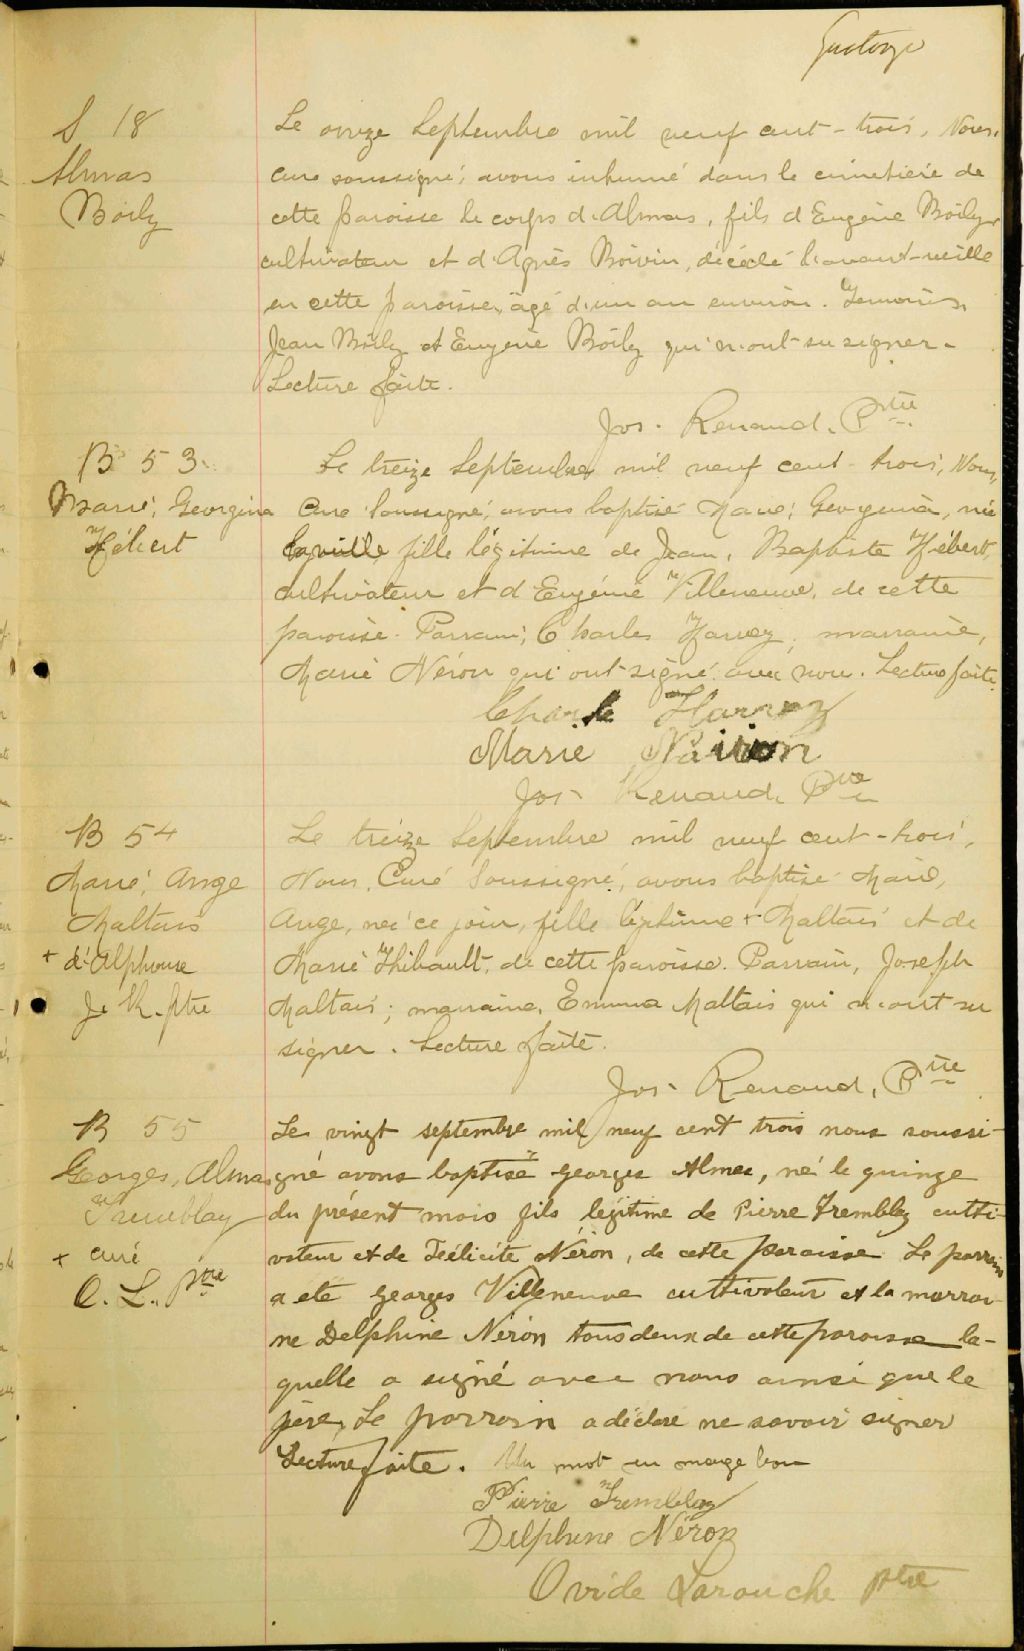 S 18
Almas
Boily
Le onze Septembre mil neuf cent-trois, Nous,
curé soussigné, avons inhumé dans le cimetière de
cette paroisse le corps d'Almas, fils d'Eugène Boily
cultivateur et d'Agnès Boivin, décédé l'avant-veille
en cette paroisse, âgé d'un an environ. Témoins,
Jean Boily et Eugène Boily qui n'ont su signer.
Lecture faite.
Jos. Renaud, Ptre
B 53
Marie, Georgina
Hébert
Le treize Septembre mil neuf cent-trois, Nous,
Curé Soussigné, avons baptisé Marie, Georgina, née
la veille fille légitime de Jean, Baptiste Hébert,
cultivateur et d'Eugénie Villeneuve, de cette
paroisse. Parrain, Charles Harvey, marraine,
Marie Néron qui ont signé avec nou. Lecture faite.
Charle Harvey
Marie Nairon
Jos. Renaud, Ptre
B 54
Marie, Ange
Maltais
+ d'Alphonse
J. R. ptre
Le treize Septembre mil neuf cent-trois,
Nous, Curé Soussigné, avons baptisé Marie,
Ange, née ce jour, fille légitime + Maltais et de
Marie Thibault, de cette paroisse. Parrain, Joseph
Maltais; marraine, Emma Maltais qui n'ont su
signer. Lecture faite.
Jos. Renaud, Ptre
B 55
Georges, Almas
Tremblay
+ curé
O. L. Ptre
Le vingt septembre mil neuf cent trois nous soussi-
gné avons baptisé Georges Almas, né le quinze
du présent mois fils légitime de Pierre Tremblay culti-
vateur et de Félicité Néron, de cette paroisse Le parrain
a été Georges Villeneuve cultivateur et la marrai-
ne Delphine Néron tous deux de cette paroisse la-
quelle a signé avec nous ainsi que le
père, Le parrain a déclaré ne savoir signer
Lecture faite. Un mot en marge bon
Pierre Tremblay
Delphine Néron
Ovide Larouche ptre